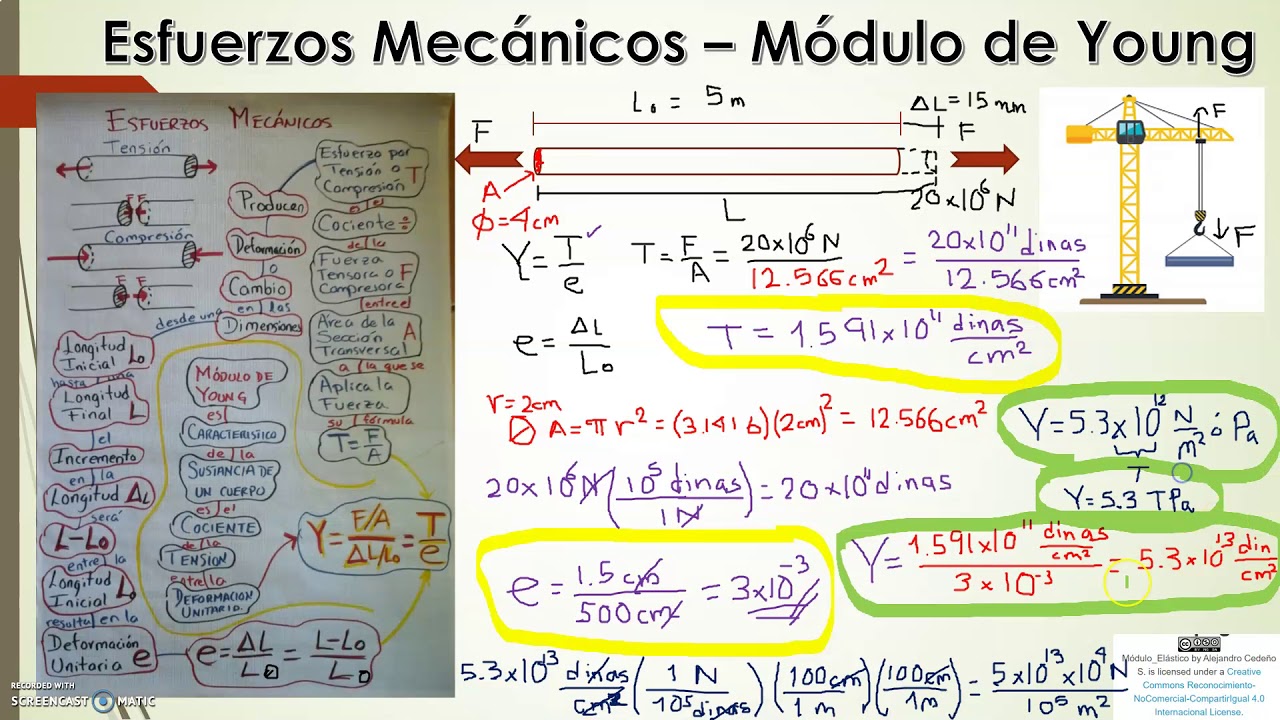 Esfuerzos Mecánicos – Módulo de Young
ESFUERZOS MECÁNICOS
Tensión
F F
Compresión
F F
Producen
Deformación
o
Cambio
en las
Dimensiones
desde una
Longitud
Inicial Lo
hasta una
Longitud
Final L
el
Incremento
en la
Longitud ΔL
será
L-Lo
entre la
Longitud
Inicial Lo
resulta en la
Deformación
Unitaria e
e = ΔL/Lo = L-Lo/Lo
Esfuerzo por
Tensión o T
Compresión
es el
Cociente ÷
de la
Fuerza
Tensora o F
Compresora
entre el
Área de la
Sección A
Transversal
a la que se
Aplica la
Fuerza
su fórmula
T = F/A
MÓDULO DE
YOUNG
es
CARACTERISTICO
de la
SUSTANCIA DE
UN CUERPO
es el
COCIENTE
de la
TENSION
entre la
DEFORMACION
UNITARIA
Y = F/A / ΔL/Lo = T/e
Lo = 5m
ΔL = 15 mm
F
F
A
Φ = 4cm
L
20x10⁶ N
F
F
Y = T/e ✓
T = F/A = 20x10⁶ N / 12.566 cm² = 20x10¹¹ dinas / 12.566 cm²
e = ΔL/Lo
T = 1.591x10¹¹ dinas/cm²
r = 2cm
A = π r² = (3.1416)(2cm)² = 12.566cm²
Y = 5.3x10¹² N/m² ó Pa
T
Y = 5.3 TPa
20x10⁶ N (10⁵ dinas / 1N) = 20x10¹¹ dinas
e = 1.5 cm / 500 cm = 3x10⁻³
Y = 1.591x10¹¹ dinas/cm² / 3x10⁻³ = 5.3x10¹³ din/cm²
5.3x10¹³ dinas/cm² (1 N / 10⁵ dinas) (100cm / 1m) (100cm / 1m) = 5x10¹³x10⁴ N / 10⁵ m²
RECORDED WITH
SCREENCAST MATIC
CC BY NC SA
Módulo_Elástico by Alejandro Cedeño
S. is licensed under a Creative
Commons Reconocimiento-
NoComercial-CompartirIgual 4.0
Internacional License.